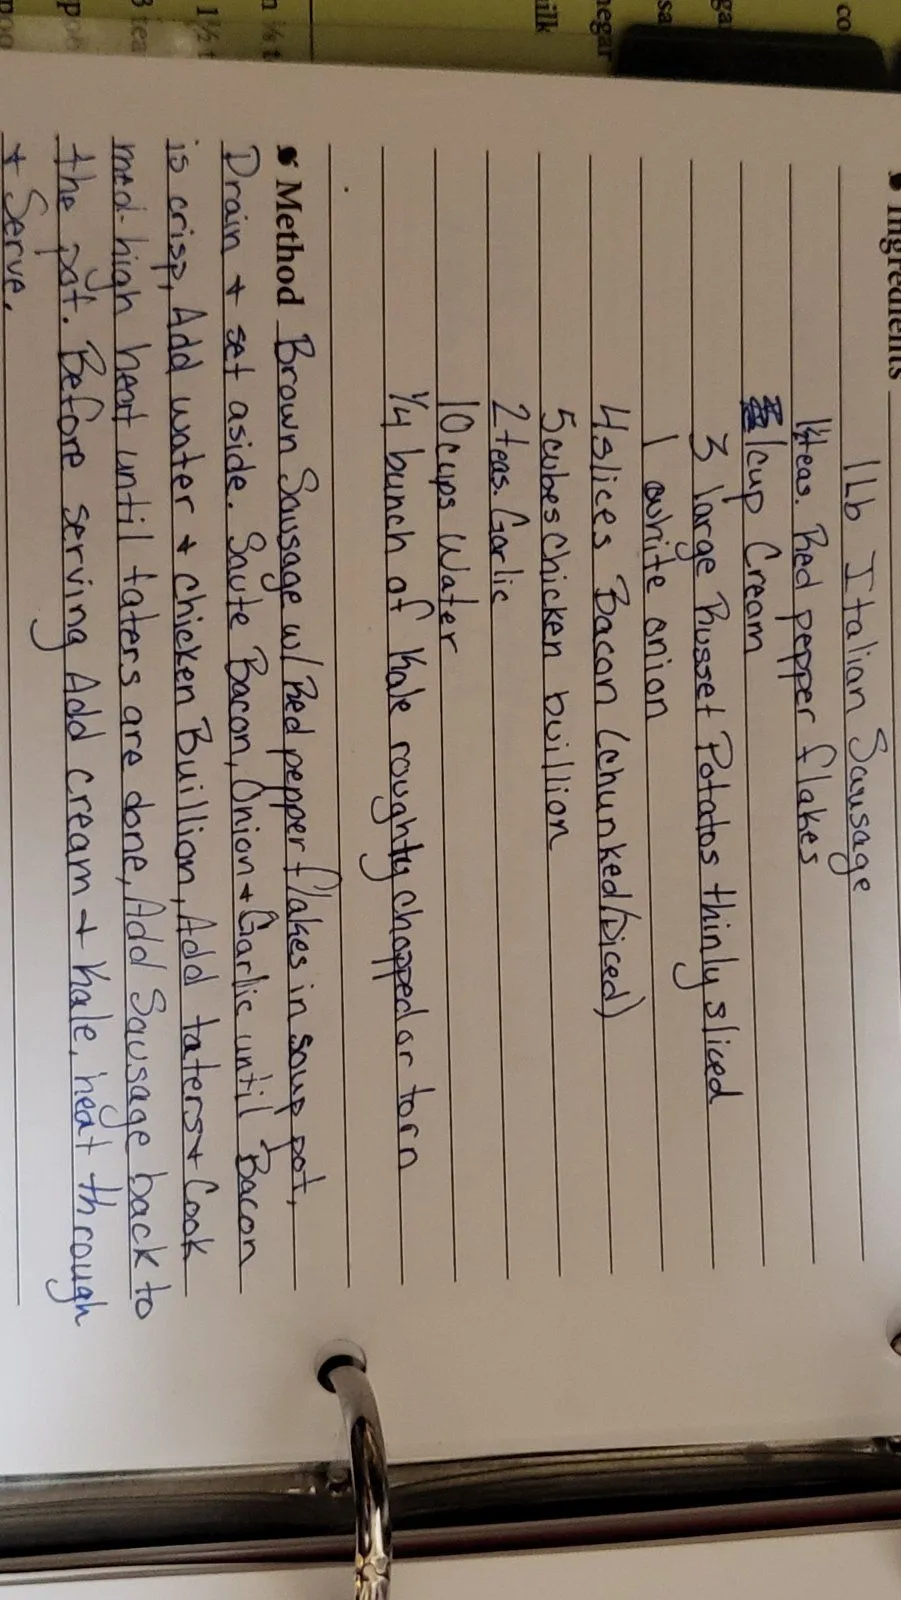 Ingredients
1 Lb Italian Sausage
teas. Red pepper flakes
1 cup Cream
3 large Russet Potatos thinly sliced
1 white onion
4 slices Bacon (chunked/Diced)
5 cubes chicken buillion
2 teas. Garlic
10 cups Water
1/4 bunch of Kale roughty chopped or torn
Method Brown Sausage w/ Red pepper flakes in soup pot,
Drain + set aside. Saute Bacon, Onion + Garlic until Bacon
is crisp, Add water + chicken Buillion, Add taters + Cook
med-high heat until taters are done, Add Sausage back to
the pot. Before serving Add cream + Kale, heat through
+ Serve.